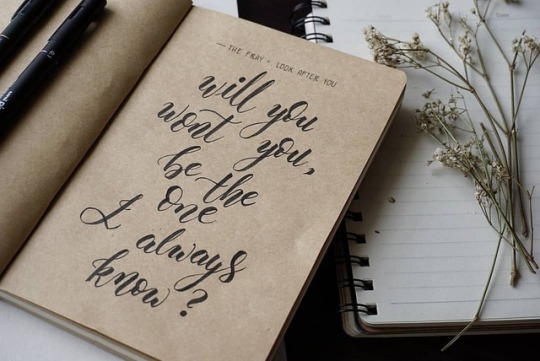 — THE FRAY • LOOK AFTER YOU
will you
wont you,
be the
one
I always
know?